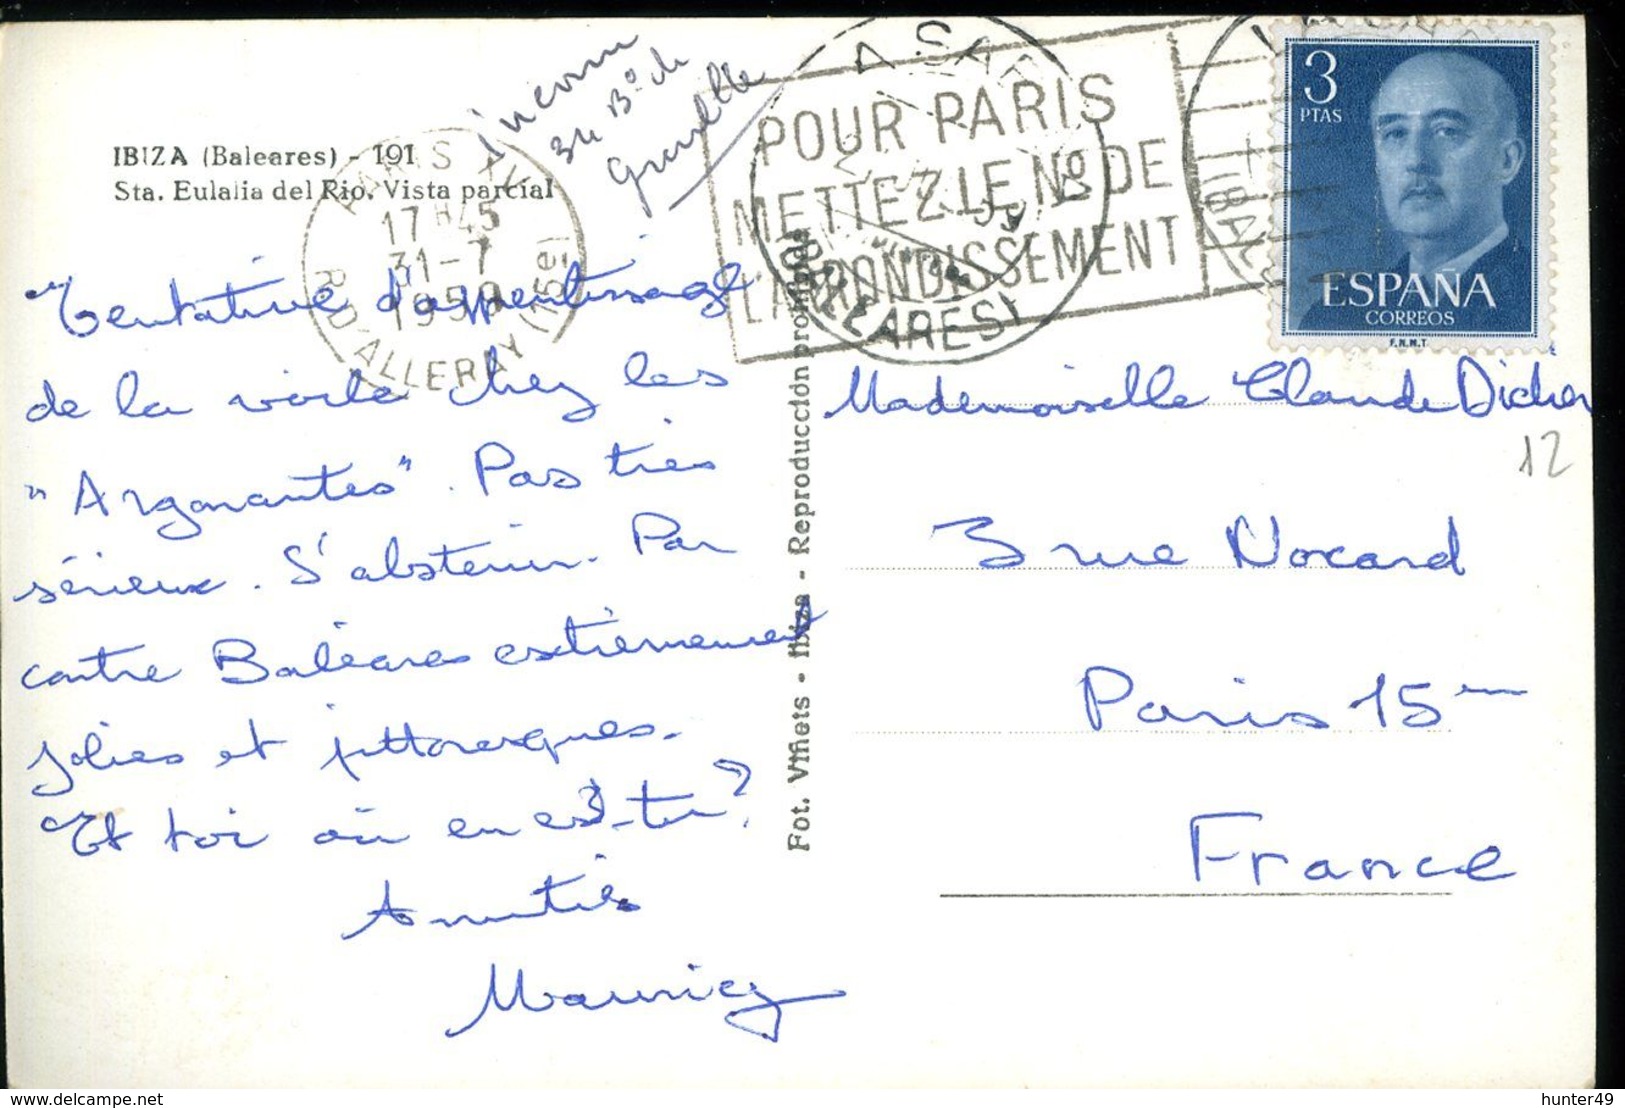 IBIZA (Baleares) - 191
Sta. Eulalia del Rio. Vista parcial
PARIS XV
17 H45
31-7
1959
R. D'ALLERAY (15e)
POUR PARIS
METTEZ LE No DE
L'ARRONDISSEMENT
(BALEARES)
3
PTAS
ESPAÑA
CORREOS
F.N.M.T.
Tentative d'apprentissage
de la voile chez les
"Argonautes". Pas très
sérieux. S'abstenir. Par
contre Baléares extrêmement
jolies et pittoresques.
Et toi où en es-tu?
Amitiés
Fot. Viñets - Ibiza - Reproducción prohibida
Mademoiselle Claude Didier
12
3 rue Nocard
Paris 15em
France
delcampe.net
hunter49